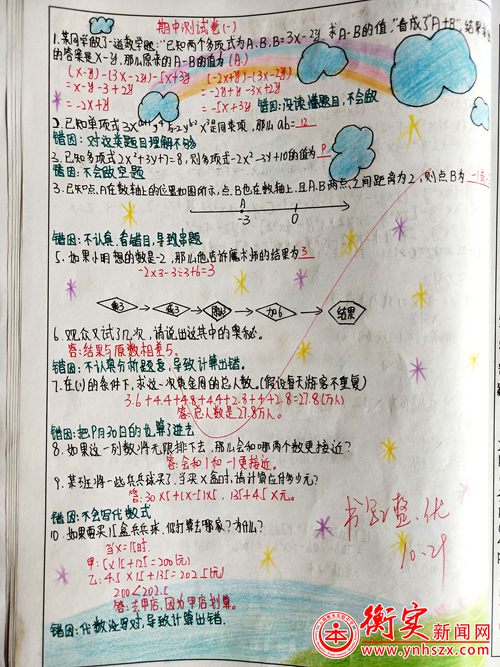 期中测试卷(一)
1.某同学做了一道数学题:"已知两个多项式为A、B,B=3x-2y,求A-B的值,"看成了"A+B",结果
的答案是x-y,那么原来的A-B的值为(A.)
(x-y)-(3x-2y)-5x+3y (-2x+y)-(3x-2y)
=x-y-3+2y =-2x+y-3x+2y
=-2x+y =-5x+3y 错因:没读懂题目,不会做
错因:对这类题目理解不够
3.已知多项式2x²+3y+7=8,则多项式-2x²-3y+10的值为 9
错因:不会做变题
3.已知点A在数轴上的位置如图所示,点B也在数轴上,且A、B两点之间距离为2,则点B为
A
-3 0
错因:不认真,看错目,导致错题
5.如果小明想的数是-2,那么他告诉魔术师的结果为 3
-2×3-3÷3+6=3
乘3 减3 除以3 加6 结果
6.观众又试了几次,请说出这其中的奥秘。
答:结果与原数相差5。
错因:不认真分析题意,导致计算出错。
7.在(1)的条件下,求这一次黄金周的总人数。(假设每天游客不重复)
3.6+4.4+4.8+4.4+2.8+4+2.8=27.8(万人)
答:总人数是27.8万人。
错因:把9月30日的也算了进去
8.如果这一列数将无限排下去,那么会和哪两个数更接近?
答:会和1和-1更接近。
9.某班将一些乒乓球买了,当买x盒时,请计算应付多少元?
错因:不会写代数式
10.如果要买15盒乒乓球,你打算去哪家?为什么?
当x=15时
甲:5×15+125=200(元)
乙:4.5×15+135=202.5(元)
200<202.5
答:去甲店,因为甲店划算。
错因:代数没写对,导致计算出错.
书写整、优
10.29
衡实新闻网
www.ynhszx.com